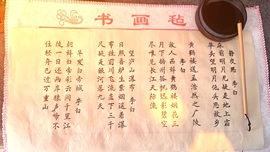 书画毡
静夜思 李白
床前明月光疑是地上霜
举头望明月低头思故乡
黄鹤楼送孟浩然之广陵
李白
故人西辞黄鹤楼烟花三
月下扬州孤帆远影碧空
尽唯见长江天际流
望庐山瀑布 李白
日照香炉生紫烟遥看瀑
布挂前川飞流直下三千
尺疑是银河落九天
早发白帝城
李白
朝辞白帝彩云间千里江
陵一日还两岸猿声啼不
住轻舟已过万重山